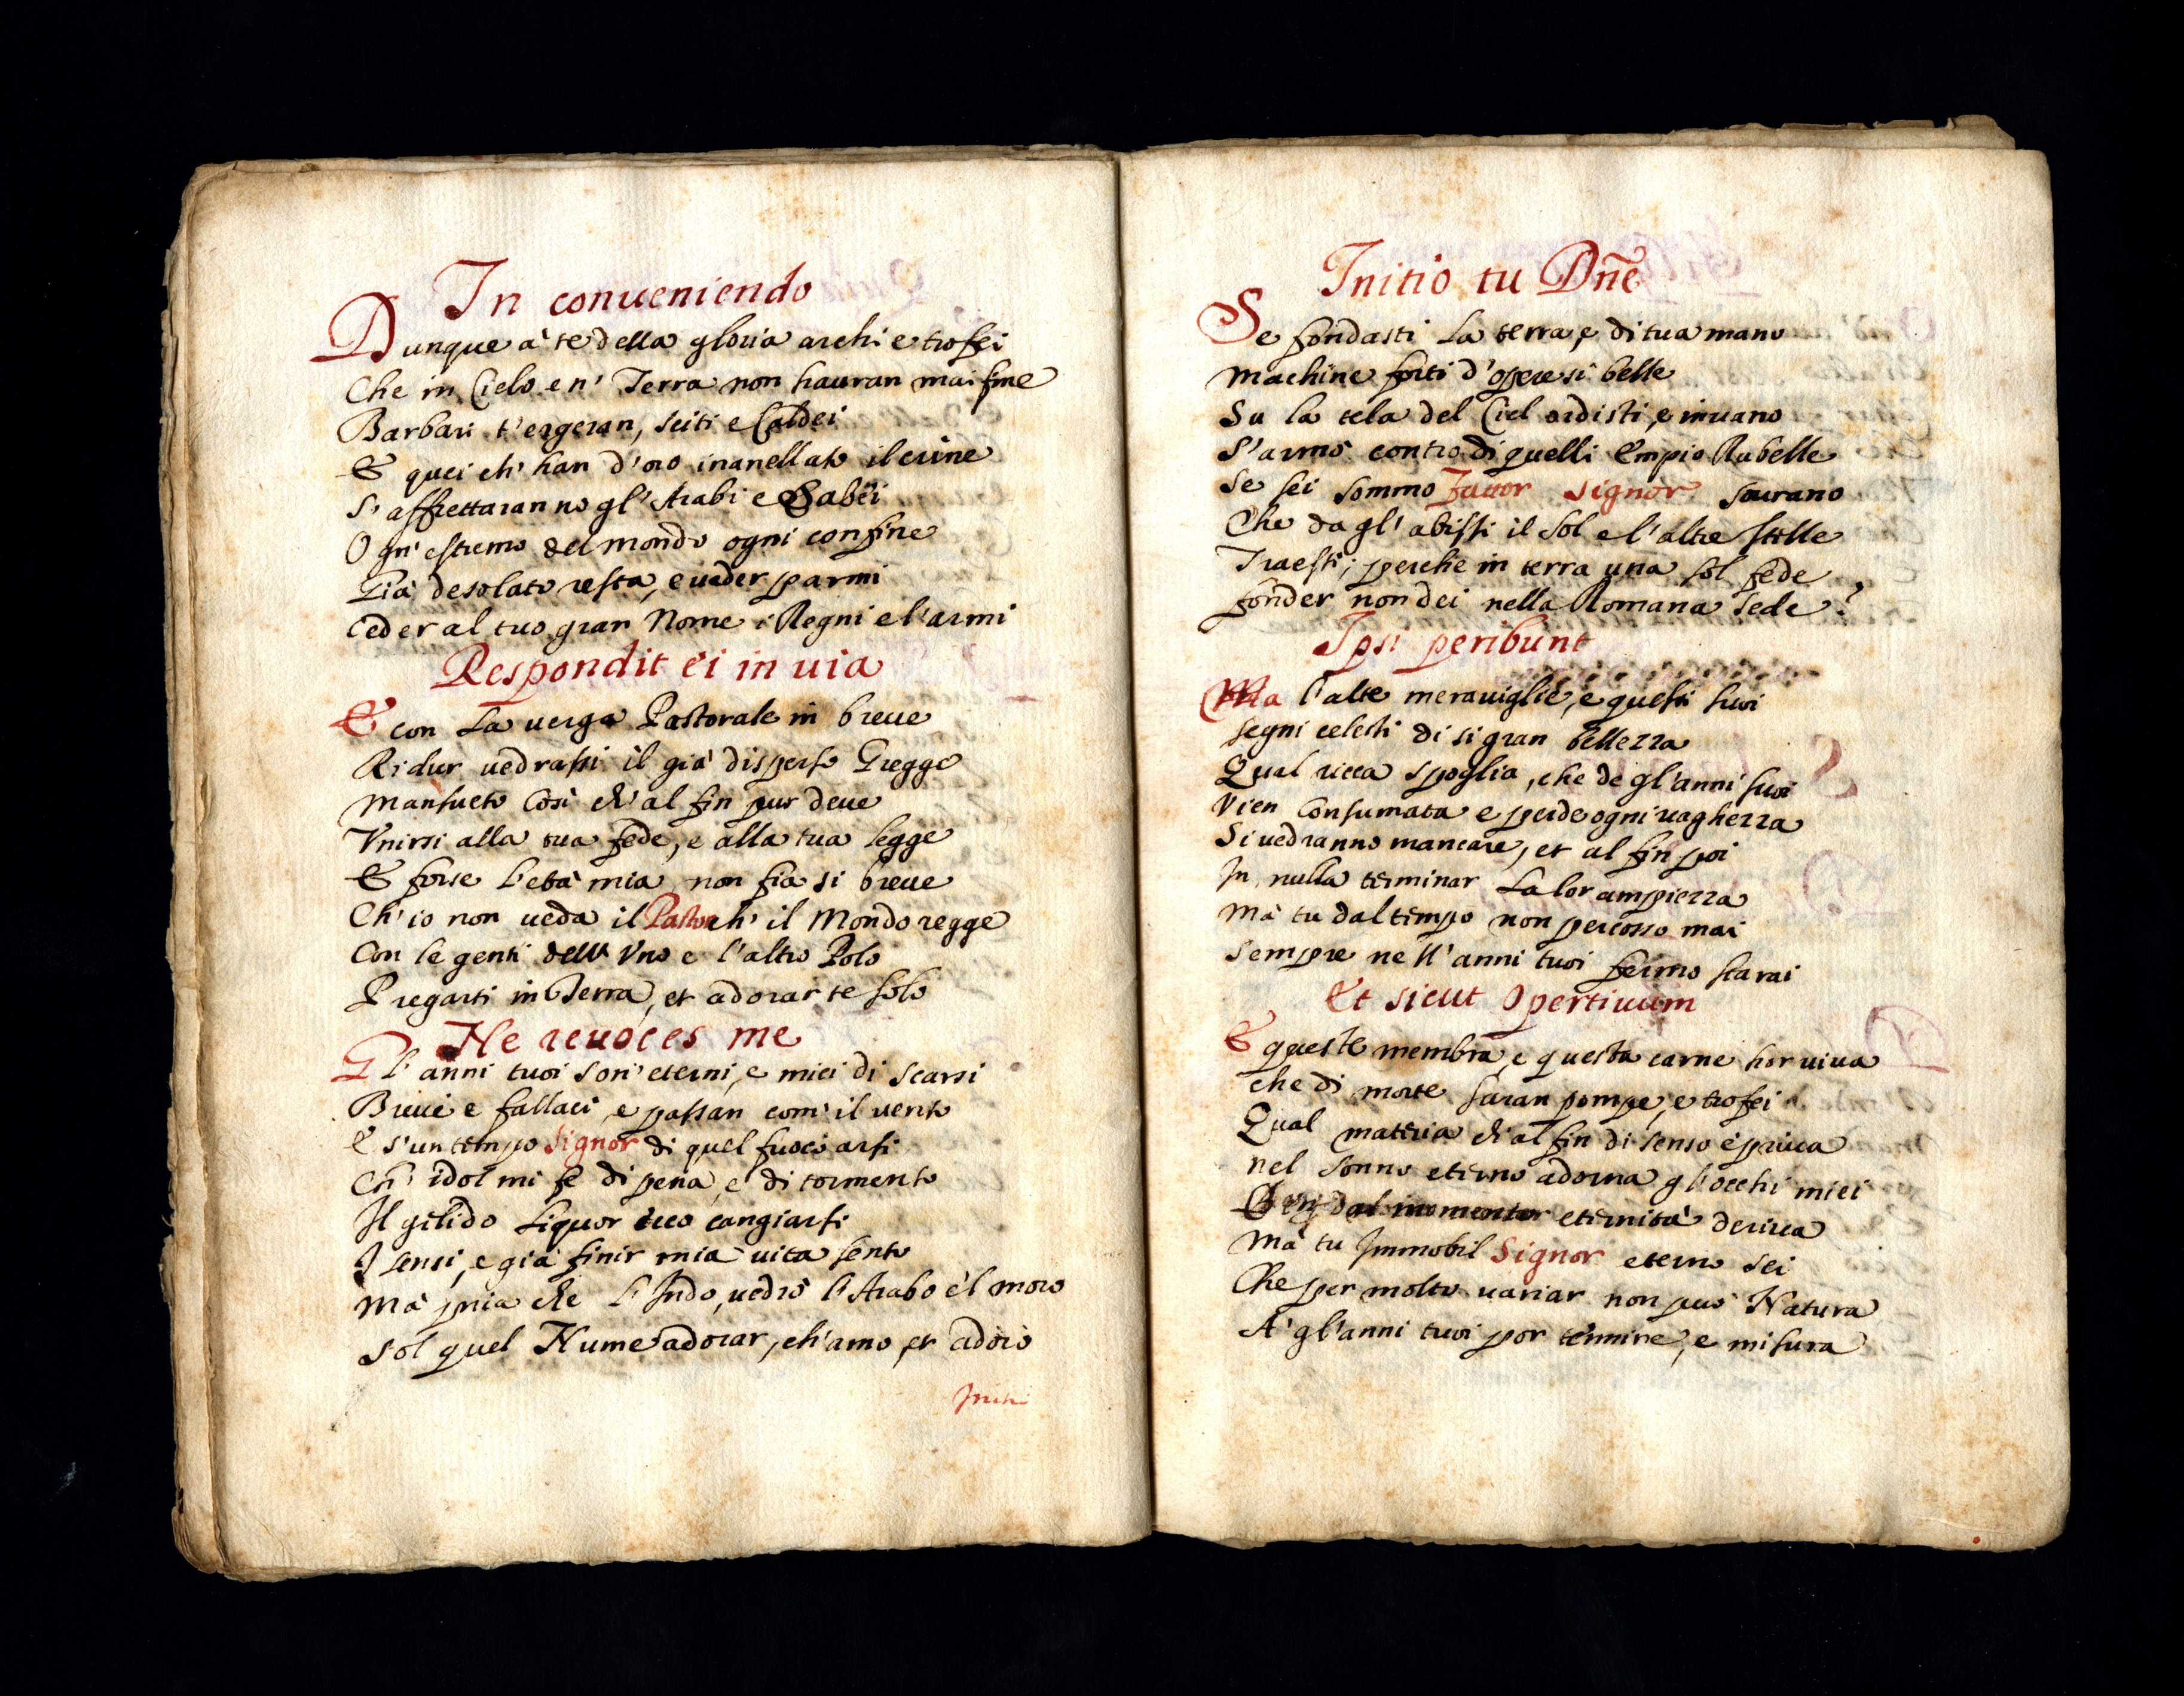 In conueniendo
Dunque à te della gloria archi e trofei
Che in Cielo e n' Terra non hauran mai fine
Barbari t'ergeran, sciti e Caldei
E quei ch' han d'oro inanellato il crine
S'affrettaranno gl'Arabi e Sabei
Ogn'estremo del mondo ogni confine
Già desolato resta, e ueder parmi
Ceder al tuo gran Nome i Regni e l'armi
Respondit ei in uia
E con la uerga Pastorale in breue
Ridur uedrassi il già disperso Gregge
Mansueto Così ch'al fin pur deue
Vnirsi alla tua fede, e alla tua legge
E forse l'età mia non fia si breue
Ch'io non ueda il Pastor ch' il Mondo regge
Con le genti dell' Vno e l'altro Polo
Pregarti in Terra, et adorar te solo
Ne reuoces me
Gl'anni tuoi son' eterni, e miei di scarsi
Breui e fallaci, e passan com' il uento
E s'un tempo Signor di quel fuoco arsi
Ch' idol mi fe di pena, e di tormento
Il gelido Liquor ecco cangiarsi
I sensi, e già finir mia uita sento
Mà pria che l'Indo, uedrò l'Arabo e'l moro
Sol quel Nume adorar, ch'amo, et adoro
Initi
Initio tu Dñe
Se fondasti la terra, e di tua mano
Machine forti d'opere si belle
Su la tela del Ciel ordisti, e inuano
S'armò contro di quelli Empio Rubelle
Se sei sommo Fattor Signor sourano
Che da gl'abissi il Sol e l'altre stelle
Traesti; perche in terra una sol fede
fonder non dei nella Romana sede?
Ipsi peribunt
Ma l'alte merauiglie, e questi suoi
segni celesti di si gran bellezza
Qual ricca spoglia, che de gl'anni suoi
Vien Consumata e perde ogni uaghezza
Si uedranno mancare, et al fin poi
In nulla terminar la lor ampiezza
Mà tu dal tempo non percosso mai
Sempre nell'anni tuoi fermo starai
Et sicut Opertiuum
E queste membra, e questa carne hor uiua
che di morte saran pompe, e trofei
Qual materia ch'al fin di senso è priua
nel sonno eterno adorna gl'occhi miei
dal momento eternità deriua
Mà tu Immobil Signor eterno sei
Che per molto uariar non può Natura
A' gl'anni tuoi por termine, e misura